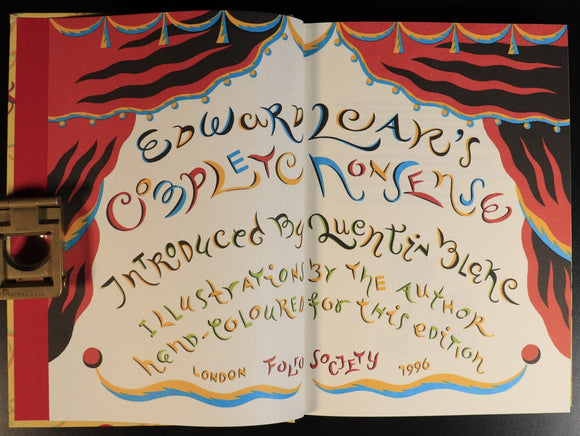 Edward Lear's
Complete Nonsense
Introduced By Quentin Blake
Illustrations by the author
hand-coloured for this edition
London Folio Society 1996